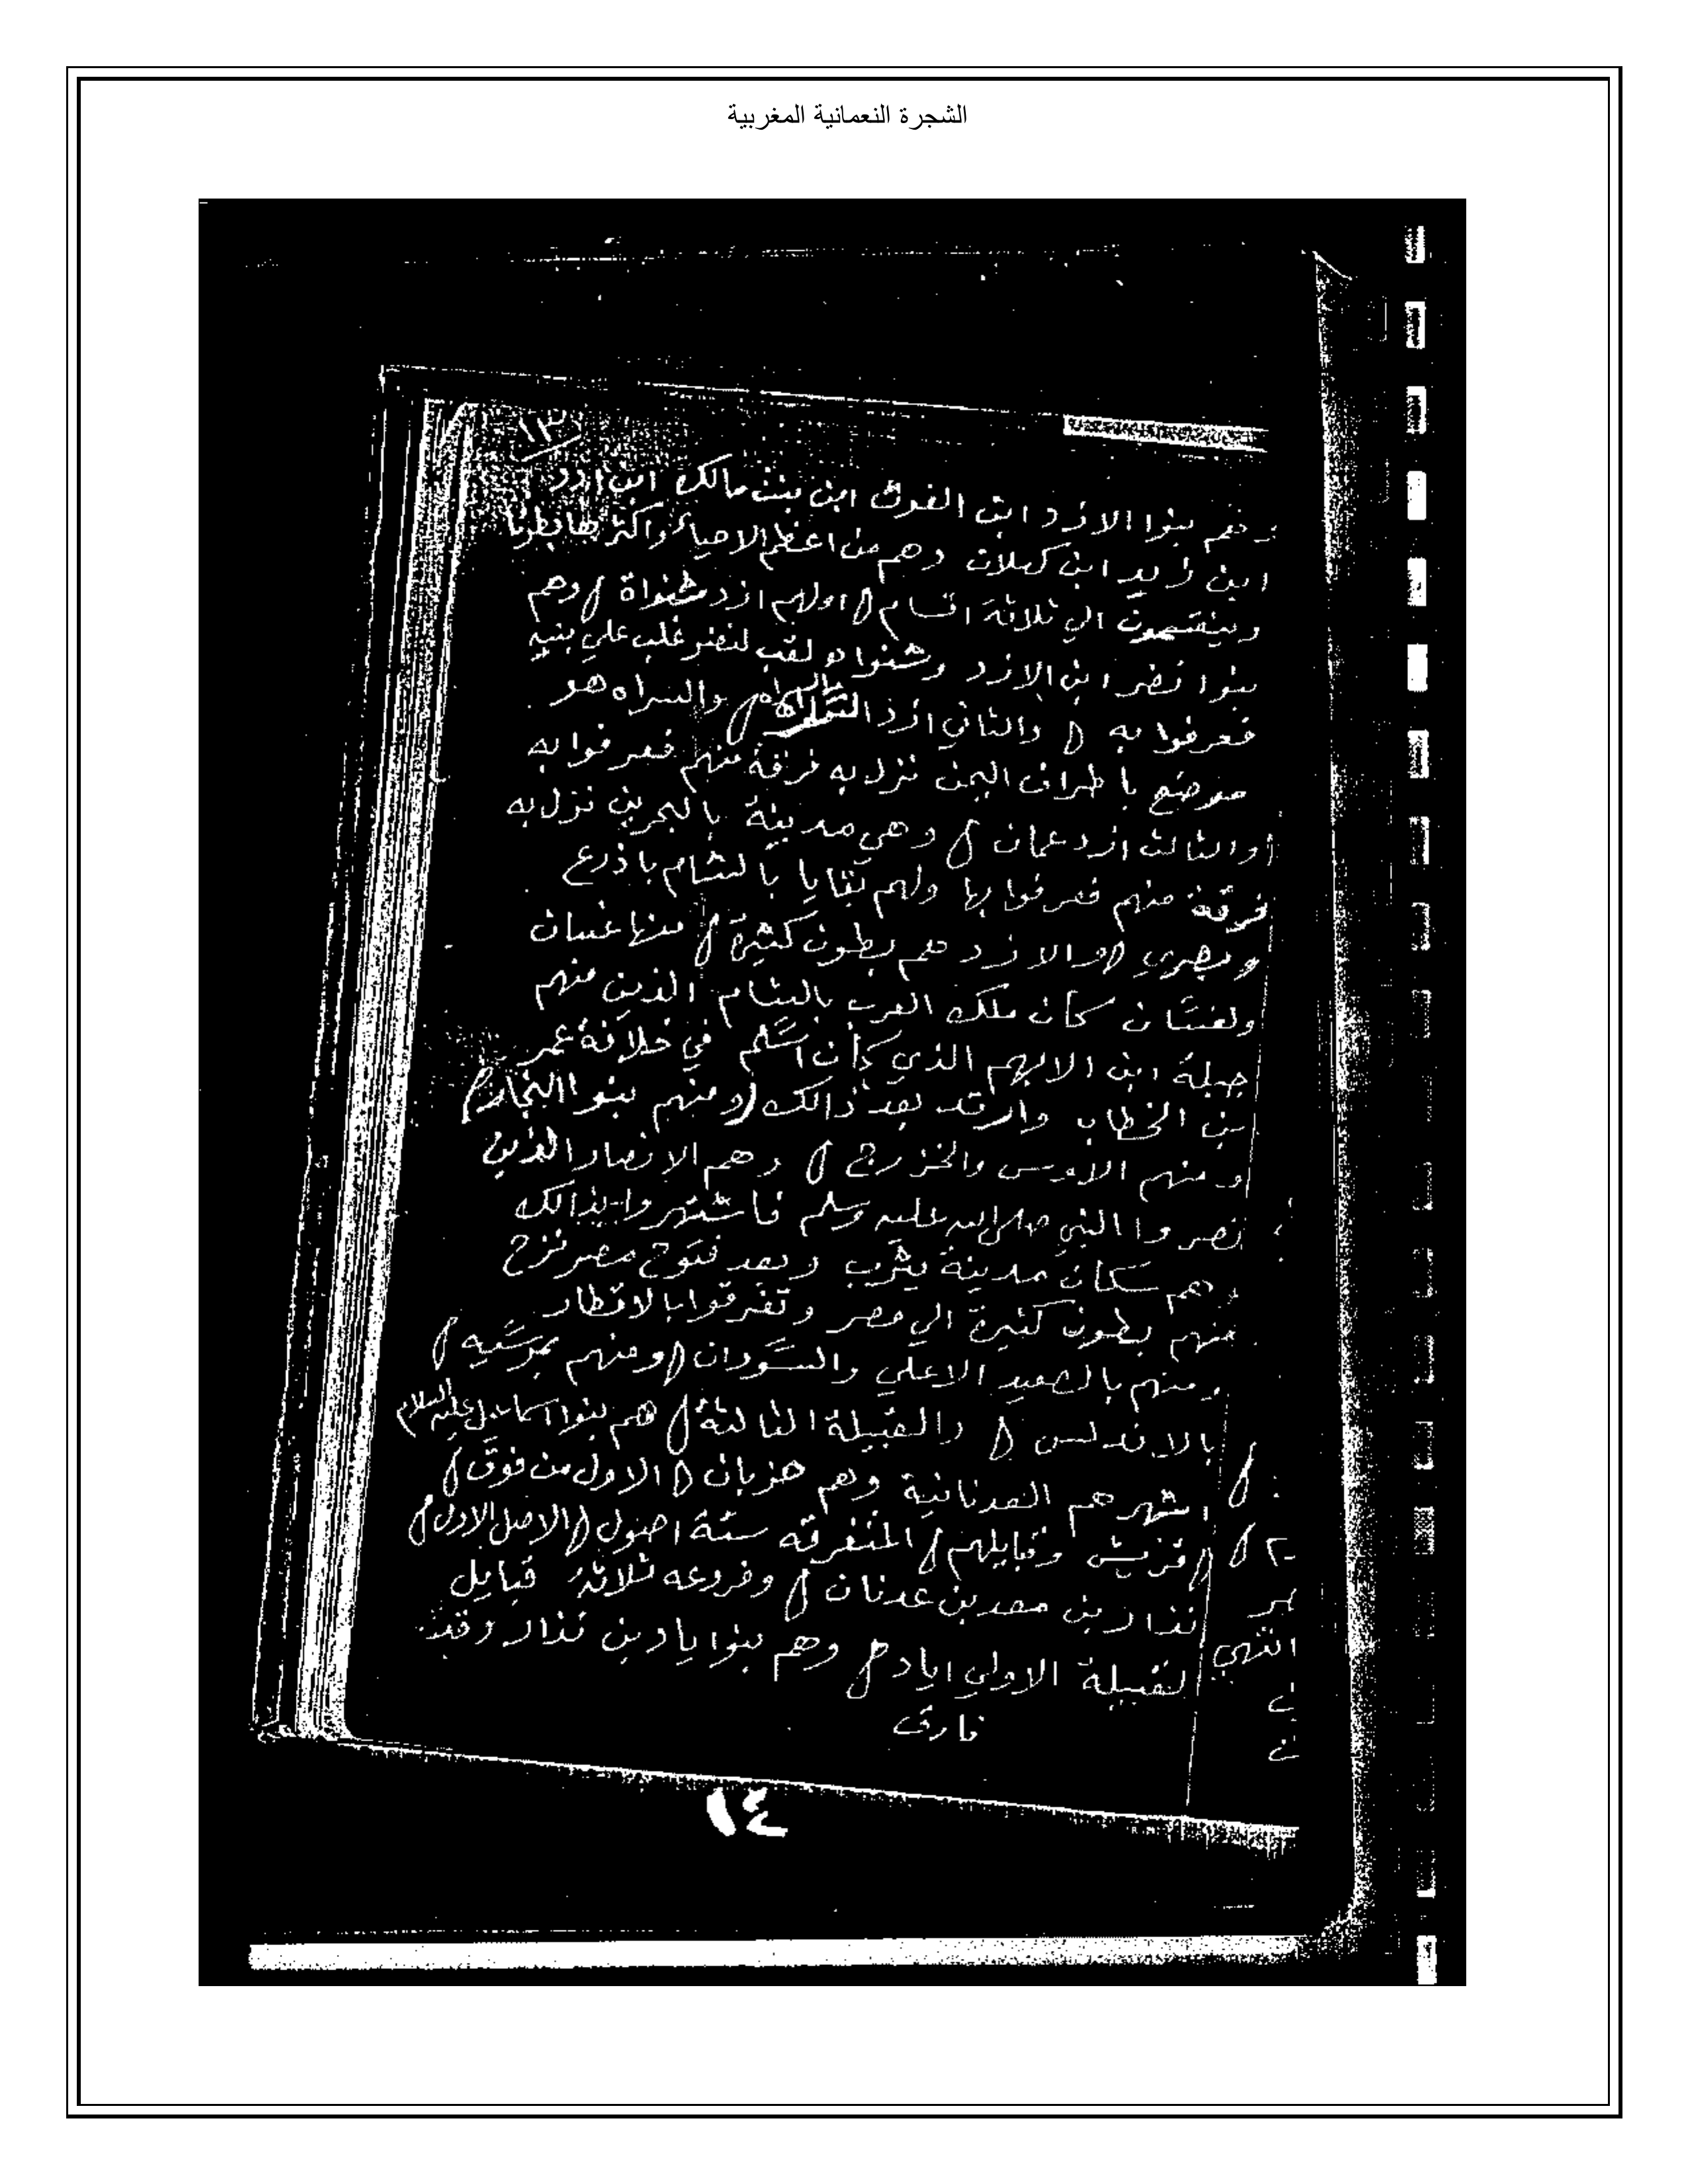 الشجرة النعمانية المغربية
١٣
وهم بنوا الازد ابن الغوث ابن بنت مالك ابن ادد
ابن زيد ابن كهلان وهم من اعظم الاحياء واكثرها بطونا
وينقسمون الي ثلاثة اقسام () اولهم ازد شنواة () وهم
بنوا نضر ابن الازد وشنواه لقب لنضر غلب علي بنيه
فعرفوا به () والثاني ازد السراه () والسراه هو
موضع باطراف اليمن نزل به فرقة منهم فعرفوا به
والثالث ازد عمان () وهي مدينة بالبحرين نزل به
فرقة منهم فعرفوا بها ولهم بقايا بالشام باذرع
وبصري () والازد هم بطون كثيرة () منها غسان
ولغسان كان ملك العرب بالشام الذين منهم
جبلة ابن الايهم الذي كان اسلم في خلافة عمر
بن الخطاب وارتد بعد ذالك () ومنهم بنوا النجار ()
ومنهم الاوس والخزرج () وهم الانصار الذين
نصروا النبي صلى الله عليه وسلم فاشتهروا بذالك
وهم سكان مدينة يثرب وبعد فتوح مصر نزح
منهم بطون كثيرة الي مصر وتفرقوا بالاقطار
ومنهم بالصعيد الاعلي والسودان () ومنهم بمرسيه ()
بالاندلس () والقبيلة الثالثة () هم بنوا اسماعيل عليه السلام
اشهرهم العدنانية وهم حزبان () الاول من فوق ()
() قريش وقبايلهم () المتفرقه ستة اصول () الاصل الاول ()
نذار بن معد بن عدنان () وفروعه ثلاثة قبايل
لقبيلة الاولي اياد () وهم بنوا ياد بن نذار وقد
فارق
انتهي
١٤